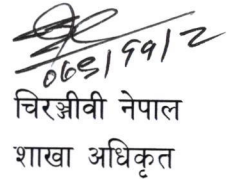 ०७९/११/२
चिरञ्जीवी नेपाल
शाखा अधिकृत